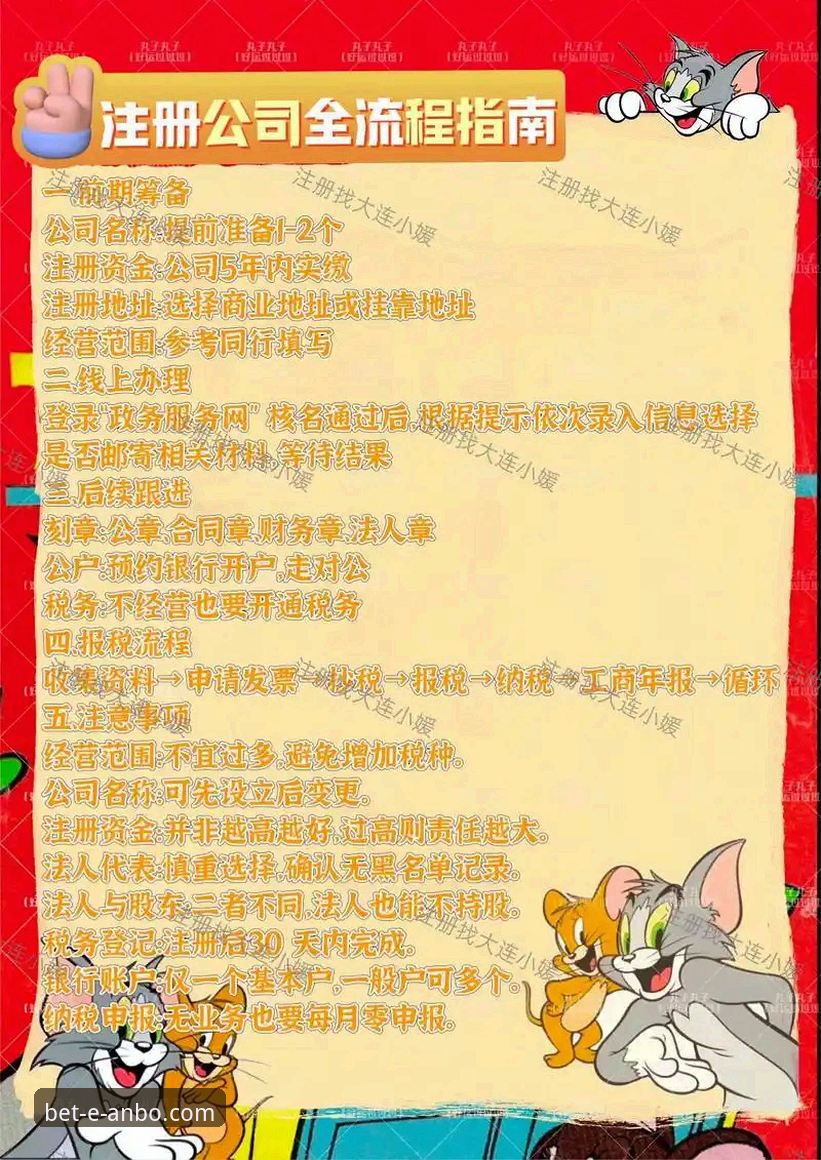 注册公司全流程指南
一.前期筹备
公司名称:提前准备1-2个
注册资金:公司5年内实缴
注册地址:选择商业地址或挂靠地址
经营范围:参考同行填写
二.线上办理
登录“政务服务网” 核名通过后,根据提示依次录入信息选择
是否邮寄相关材料, 等待结果
三.后续跟进
刻章:公章,合同章,财务章,法人章
公户:预约银行开户,走对公
税务:不经营也要开通税务
四.报税流程
收集资料→申请发票→抄税→报税→纳税→工商年报→循环
五.注意事项
经营范围:不宜过多,避免增加税种。
公司名称:可先设立后变更。
注册资金:并非越高越好,过高则责任越大。
法人代表:慎重选择,确认无黑名单记录。
法人与股东:二者不同,法人也能不持股。
税务登记:注册后30 天内完成。
银行账户:仅一个基本户,一般户可多个。
纳税申报:无业务也要每月零申报。
注册找大连小媛
bet-e-anbo.com